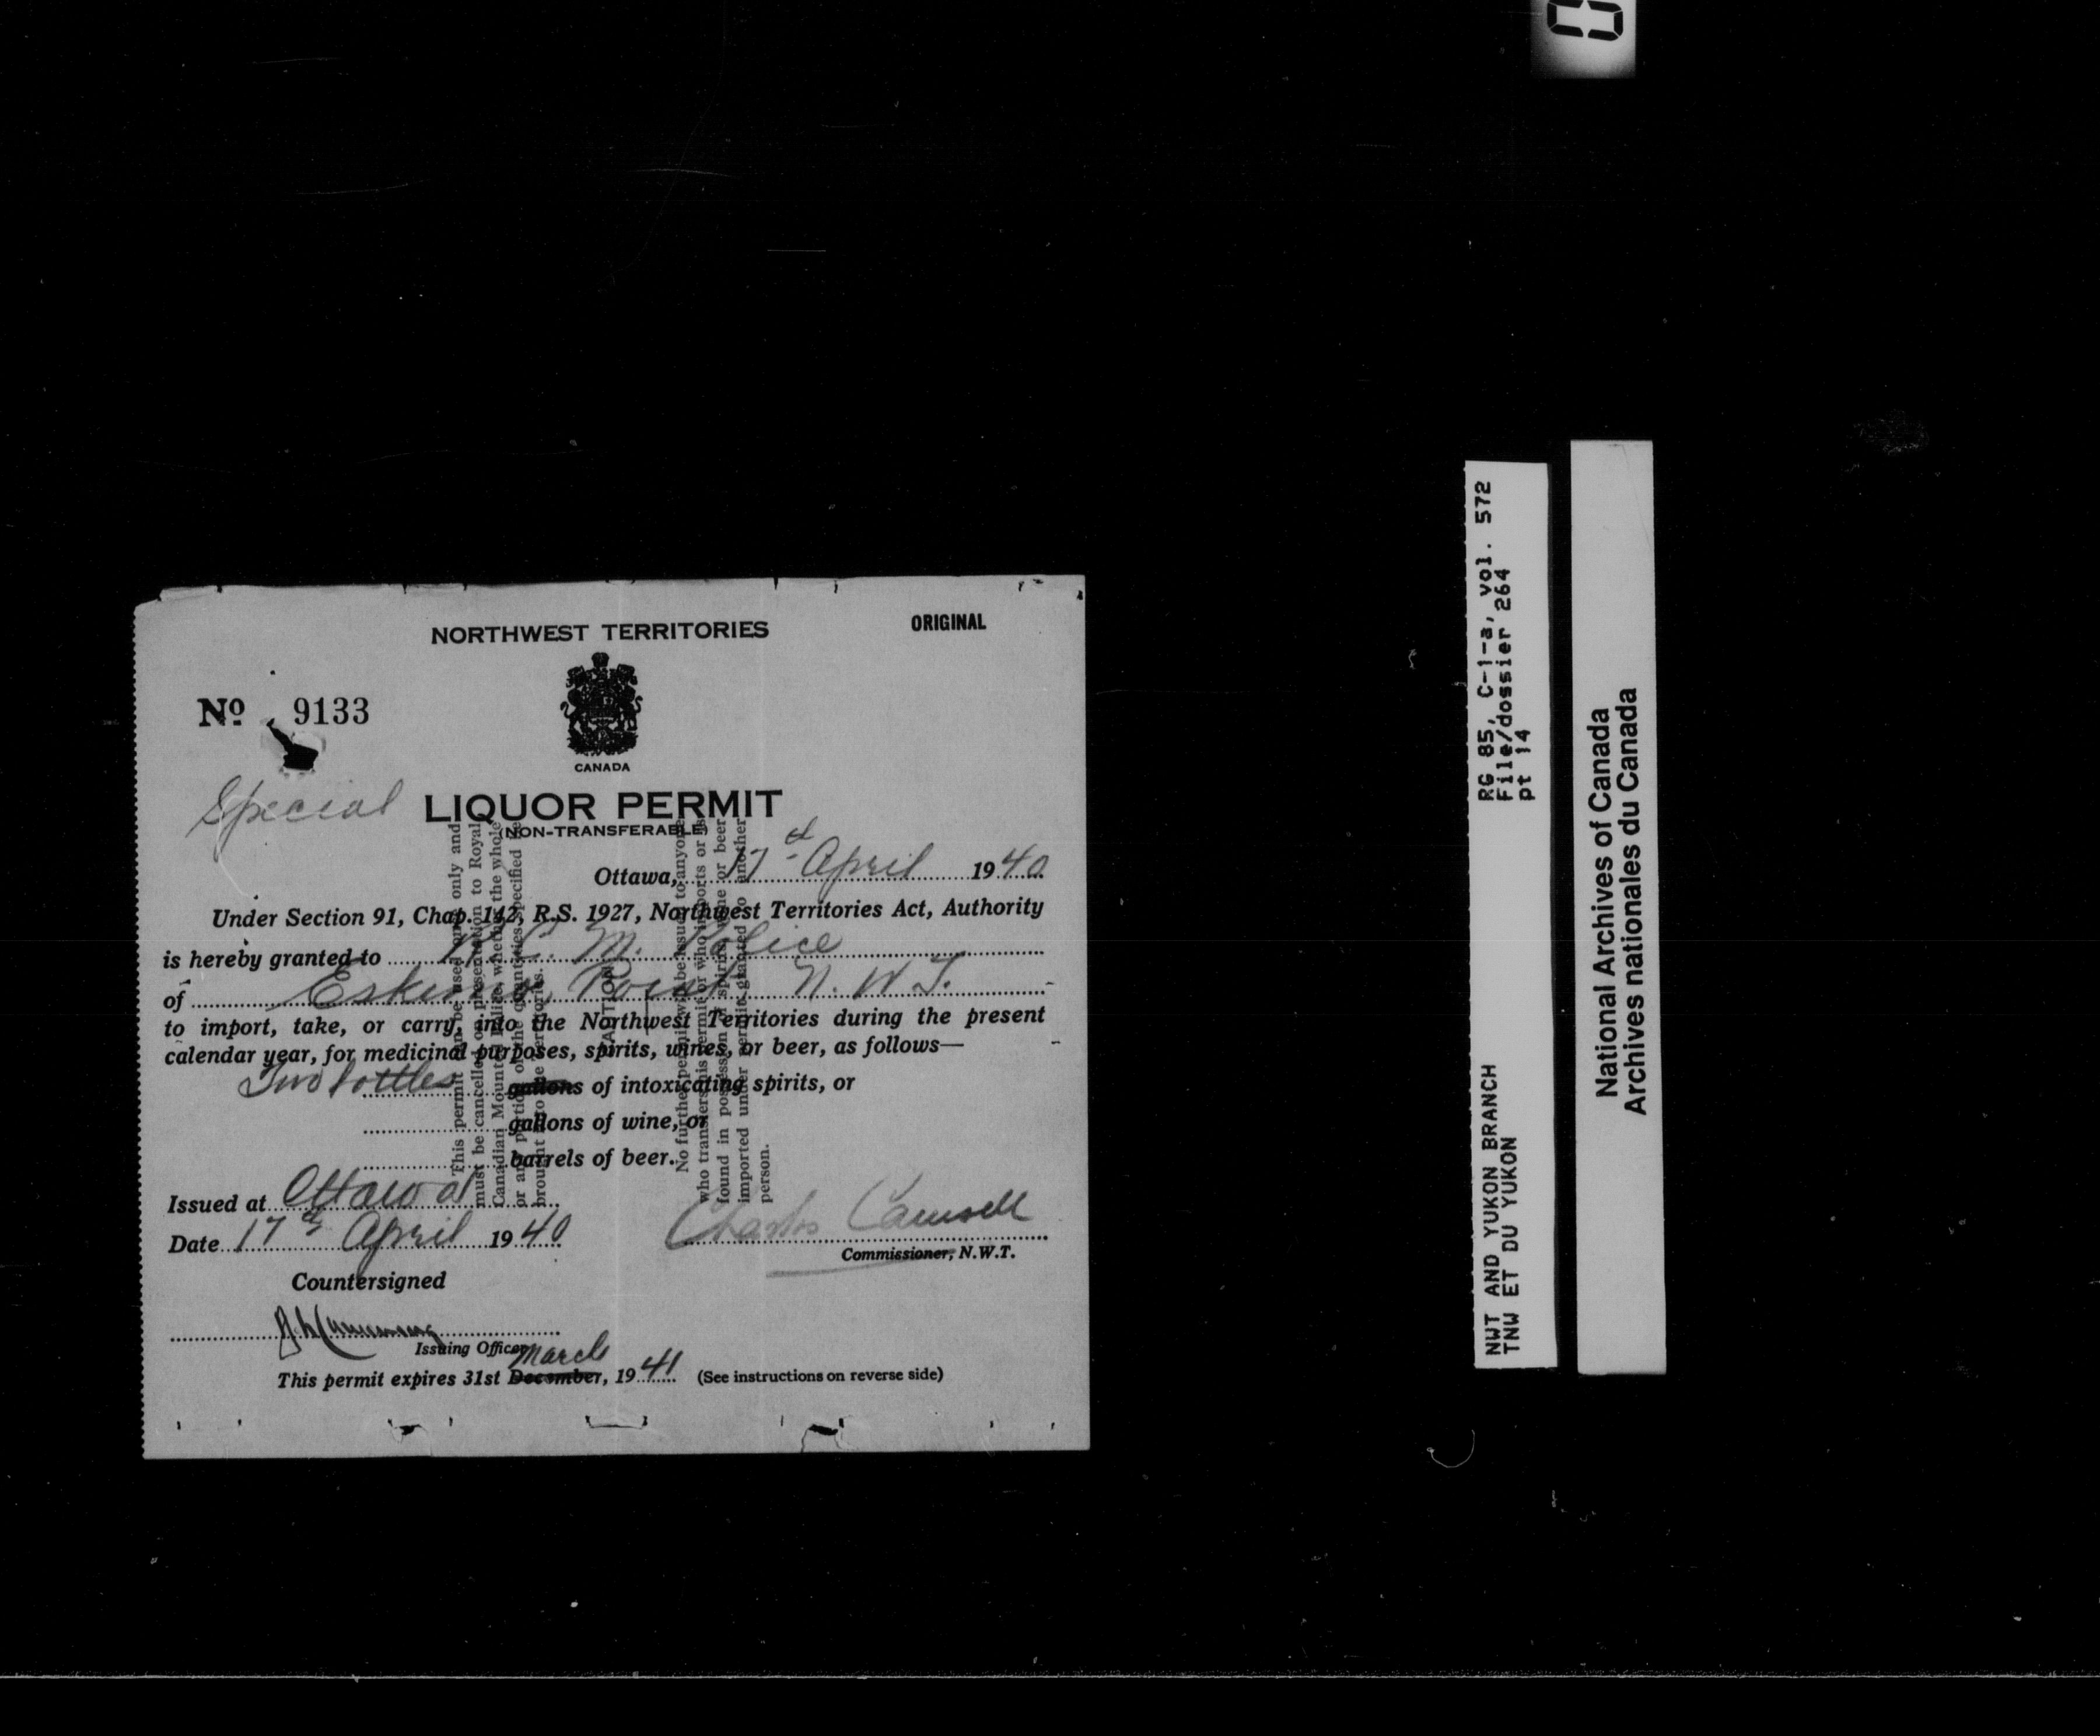 NORTHWEST TERRITORIES
ORIGINAL
No 9133
CANADA
Special
LIQUOR PERMIT
(NON-TRANSFERABLE)
Ottawa, 17th April 1940
Under Section 91, Chap. 142, R.S. 1927, Northwest Territories Act, Authority
is hereby granted to R. C. M. Police
of Eskimo Point N. W. T.
to import, take, or carry, into the Northwest Territories during the present
calendar year, for medicinal purposes, spirits, wines, or beer, as follows—
Two bottles gallons of intoxicating spirits, or
gallons of wine, or
barrels of beer.
Issued at Ottawa
Date 17th April 1940
Charles Camsell
Commissioner, N.W.T.
Countersigned
Issuing Officer
March
This permit expires 31st December, 1941 (See instructions on reverse side)
CAUTION
This permit can be used once only and
must be cancelled on presentation to Royal
Canadian Mounted Police whether the whole
or any portion of the quantities specified be
brought into the Territories.
No further permit will be issued to anyone
who transfers this permit or who imports or is
found in possession of spirits, wine or beer
imported under a permit granted to another
person.
RG 85, C-1-a, vol. 572
File/dossier 264
pt 14
NWT AND YUKON BRANCH
TNW ET DU YUKON
National Archives of Canada
Archives nationales du Canada
0